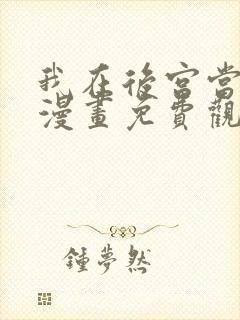 我在後宮當
漫畫免費觀
鍾夢然